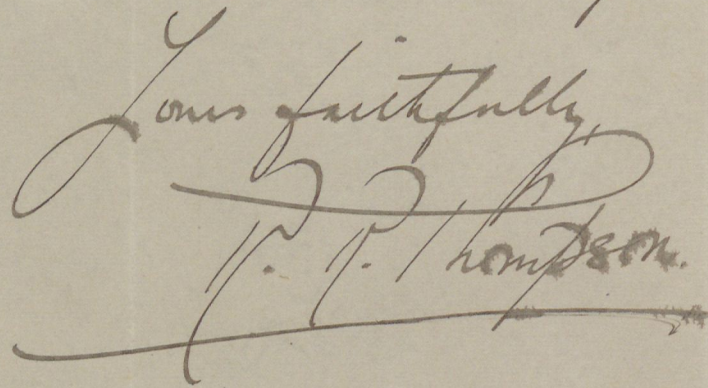 Yours faithfully,
R. R. Thompson.